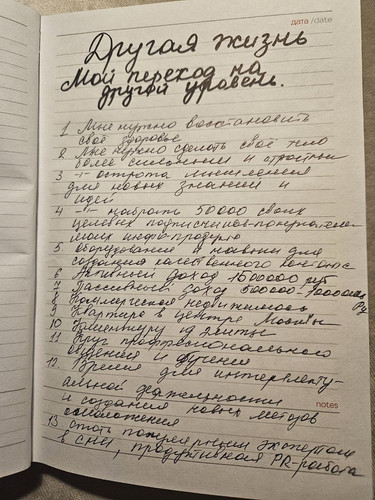 дата /date
Другая жизнь
Мой переход на
другой уровень.
1 Мне нужно восстановить
своё здоровье
2 Мне нужно сделать своё тело
более сильным и стройным
3 -"- острота мышления
для новых знаний и
идей
4 -"- набрать 50000 своих
целевых подписчиков-покупателей
моих инфо-продуктов
5 оборудование и навыки для
создания качественного контента
6 Активный доход 1500000 руб
7 Пассивный доход 500000-1000000
Ру
8 Коммерческая недвижимость
9 Квартира в центре Москвы
10 Клиентуру из элиты
11 Круг профессионального
общения и
12. Время для интеллекту-
альной деятельности
и создания новых методов
омоложения
notes
13 стать популярным экспертом
в сми, продуктивная PR-работа